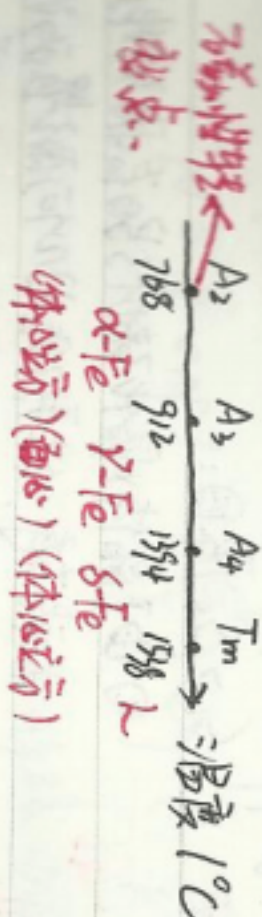 A₂ A₃ A₄ Tm 温度/℃
768 912 1394 1538
α-Fe γ-Fe δFe L
(体心立方)(面心)(体心立方)